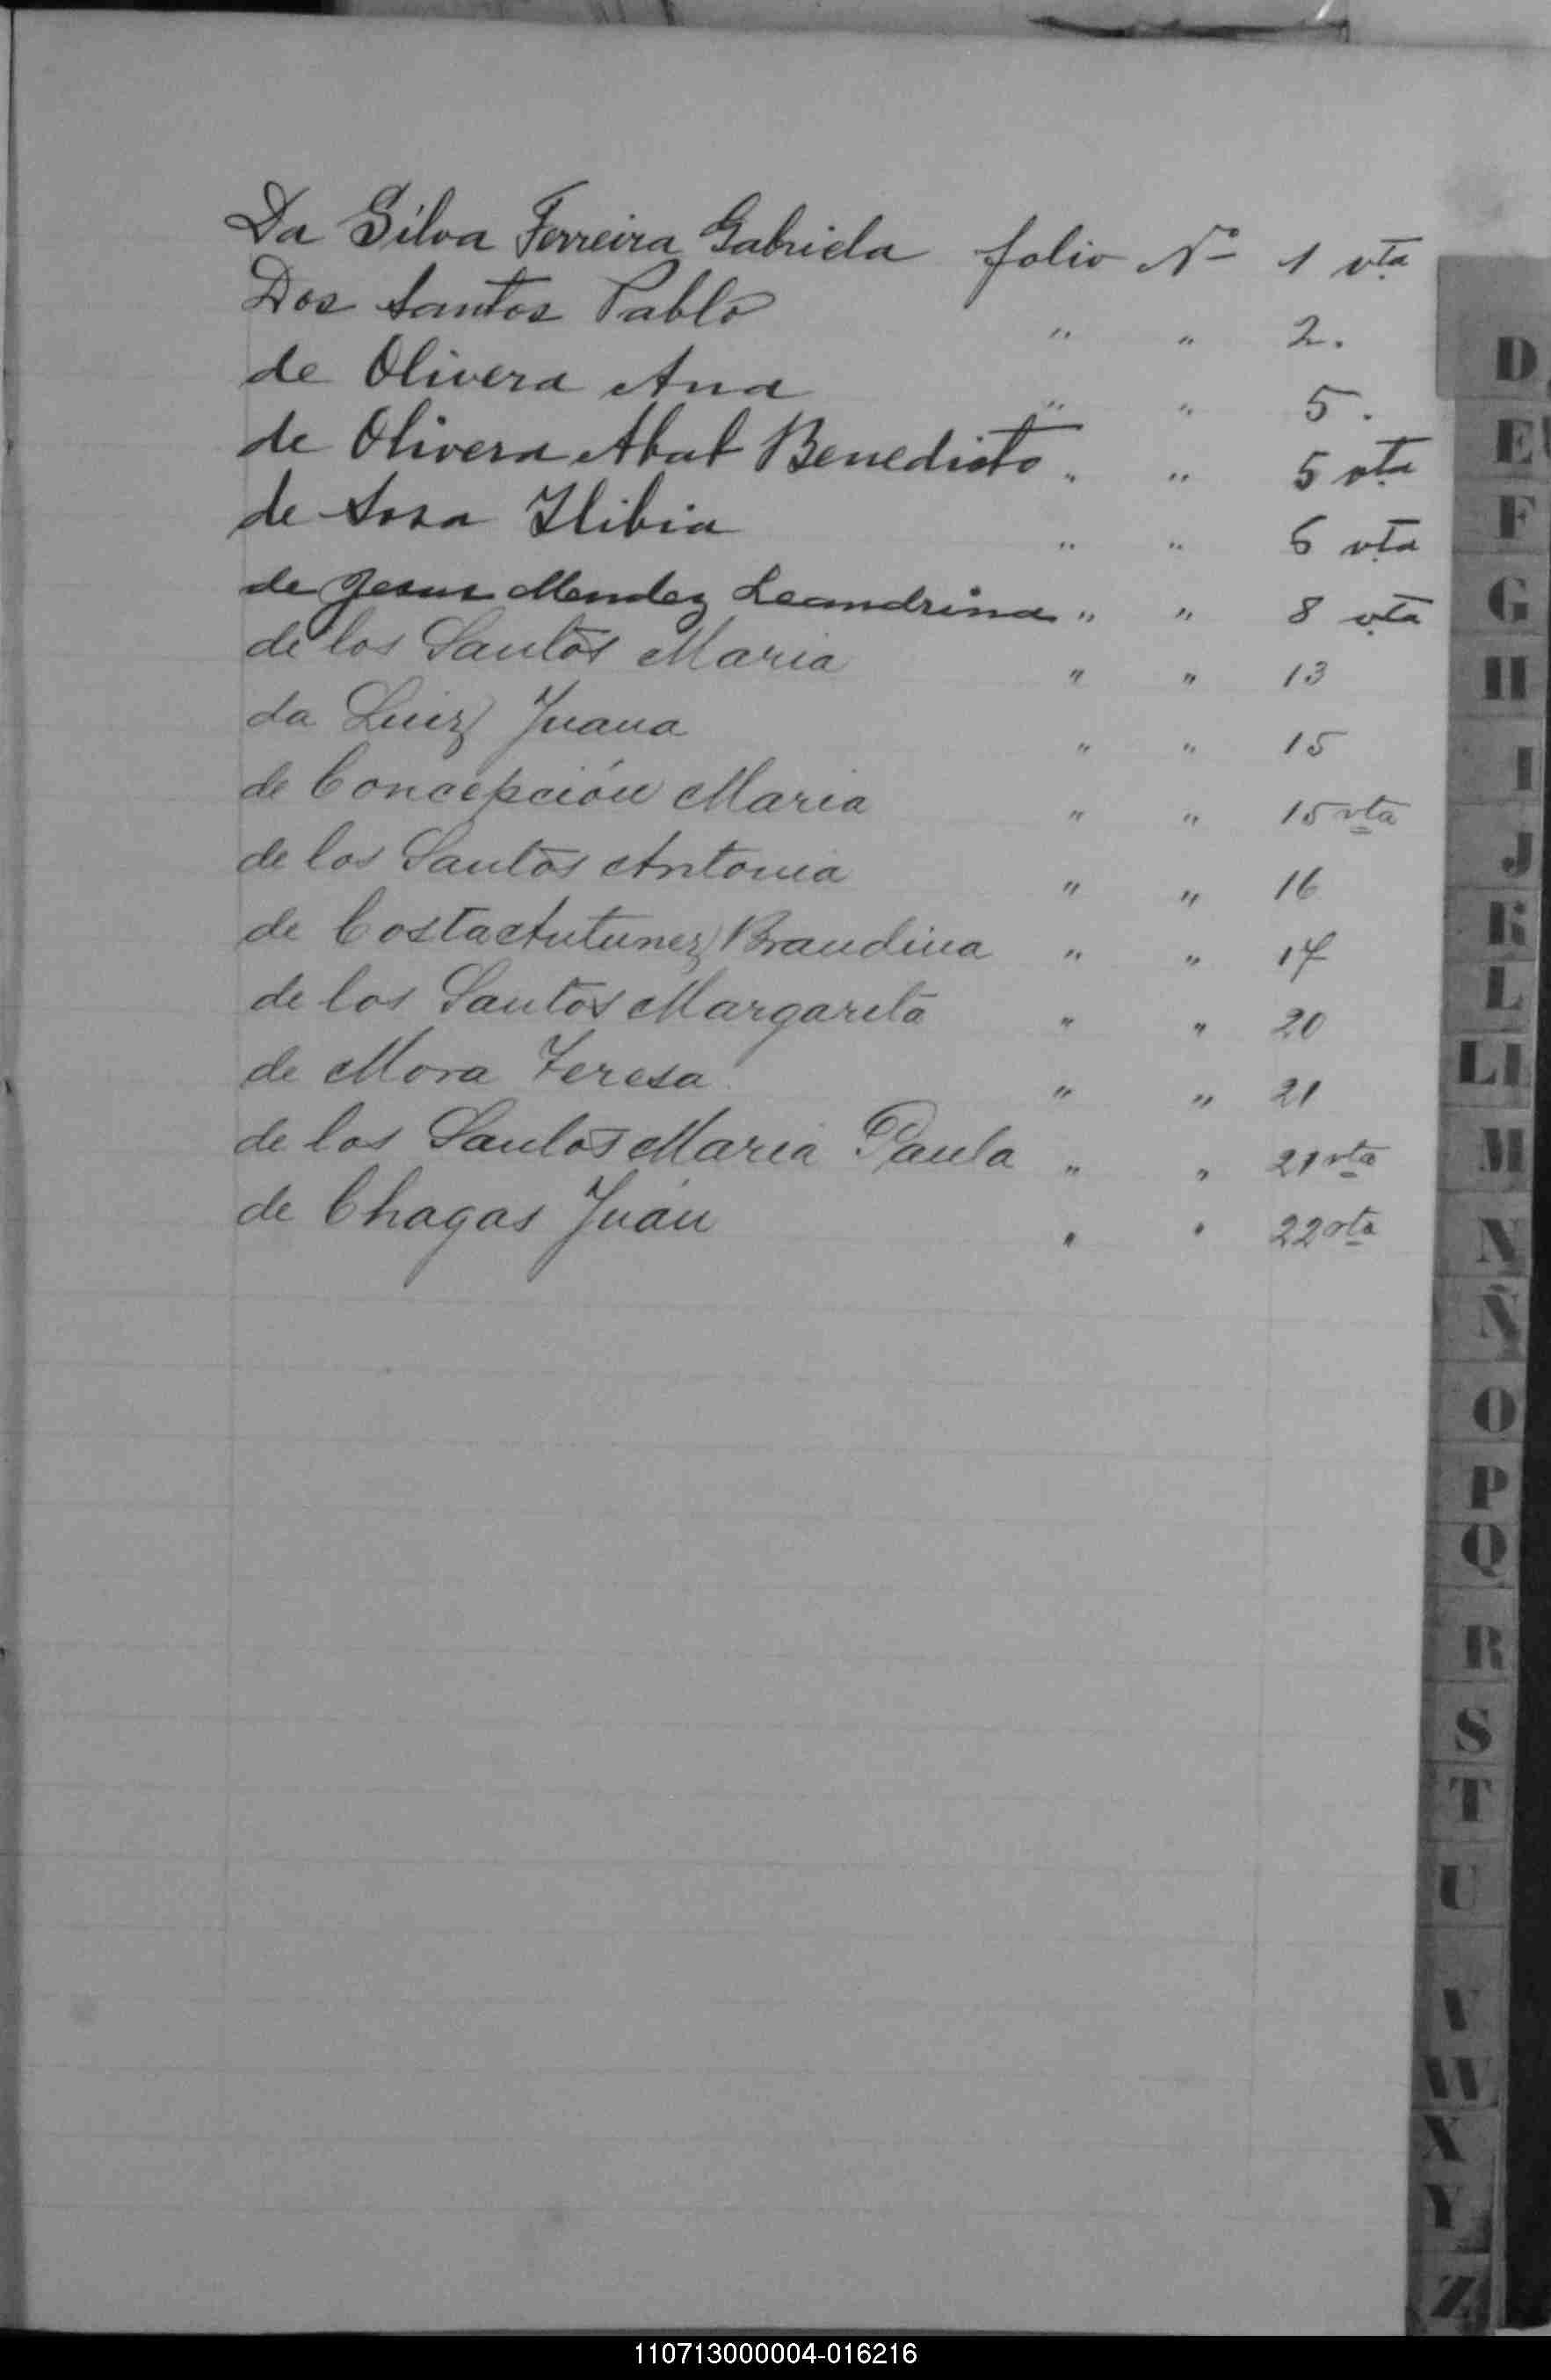 Da Silva Ferreira Gabriela folio Nº 1 vta
Dos Santos Pablo " " 2.
de Olivera Ana " " 5.
de Olivera Abat Benedicto " " 5 vta
de Sosa Ilibia " " 6 vta
de Jesus Mendez Leandrina " " 8 vta
de los Santos Maria " " 13
da Luiz Juana " " 15
de Concepción Maria " " 15 vta
de los Santos Antonia " " 16
de Costa Antunez Brandina " " 17
de los Santos Margarita " " 20
de Mora Teresa " " 21
de los Santos Maria Paula " " 21 vta
de Chagas Juan " " 22 vta
D
E
F
G
H
I
J
K
L
LL
M
N
Ñ
O
P
Q
R
S
T
U
V
W
X
Y
Z
110713000004-016216